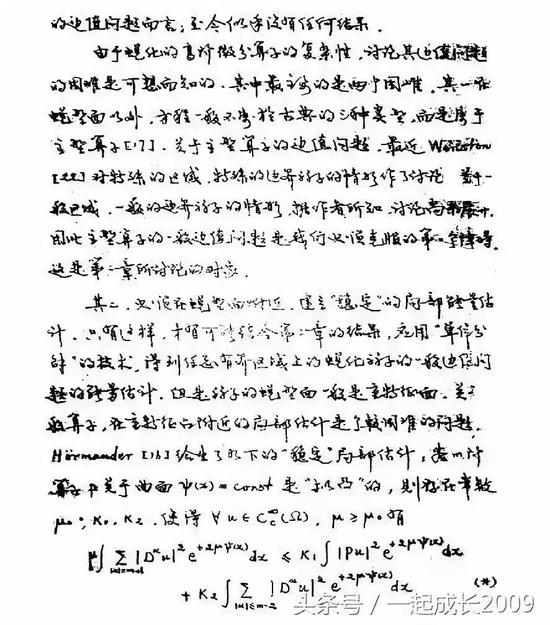 的边值问题而言，至今似乎没有任何结果.
由于蜕化的高阶微分算子的复杂性，讨论其边值问题
的困难是可想而知的. 其中最主要的是两个困难. 其一在
蜕型面以外，方程一般不属于古典的三种类型，而是属于
主型算子[17]. 关于主型算子的边值问题，最近
[22]对特殊的区域，特殊的边界算子的情形作了讨论 至于一
般区域，一般的边界算子的情形，据作者所知，讨论尚未展开.
因此主型算子的一般边值问题是我们必须克服的第一个障碍.
这是第二章所讨论的对象.
其二，必须在蜕型面附近，建立"稳定"的局部能量估
计. 只有这样，才有可能结合第二章的结果，应用"单位分
解"的技术，得到任意有界区域上的蜕化算子的一般边值问
题的能量估计. 但是算子的蜕型面一般是重特征面. 关于
般算子，在重特征面附近的局部估计是个较困难的问题.
Hörmander [16]给出了如下的"稳定"局部估计，若m阶
算子P关于曲面 ψ(x)=const 是"拟凸"的，则存在常数
μ₀, K₁, K₂, 使得 ∀u∈C_c^∞(Ω), μ≥μ₀有
μ∫∑_{|α|=m-1}|D^αu|² e^{+2μψ(x)}dx ≤ K₁∫|Pu|² e^{+2μψ(x)}dx
+ K₂∫∑_{|α|≤m-2}|D^αu|² e^{+2μψ(x)}dx (*)
头条号 / 一起成长2009